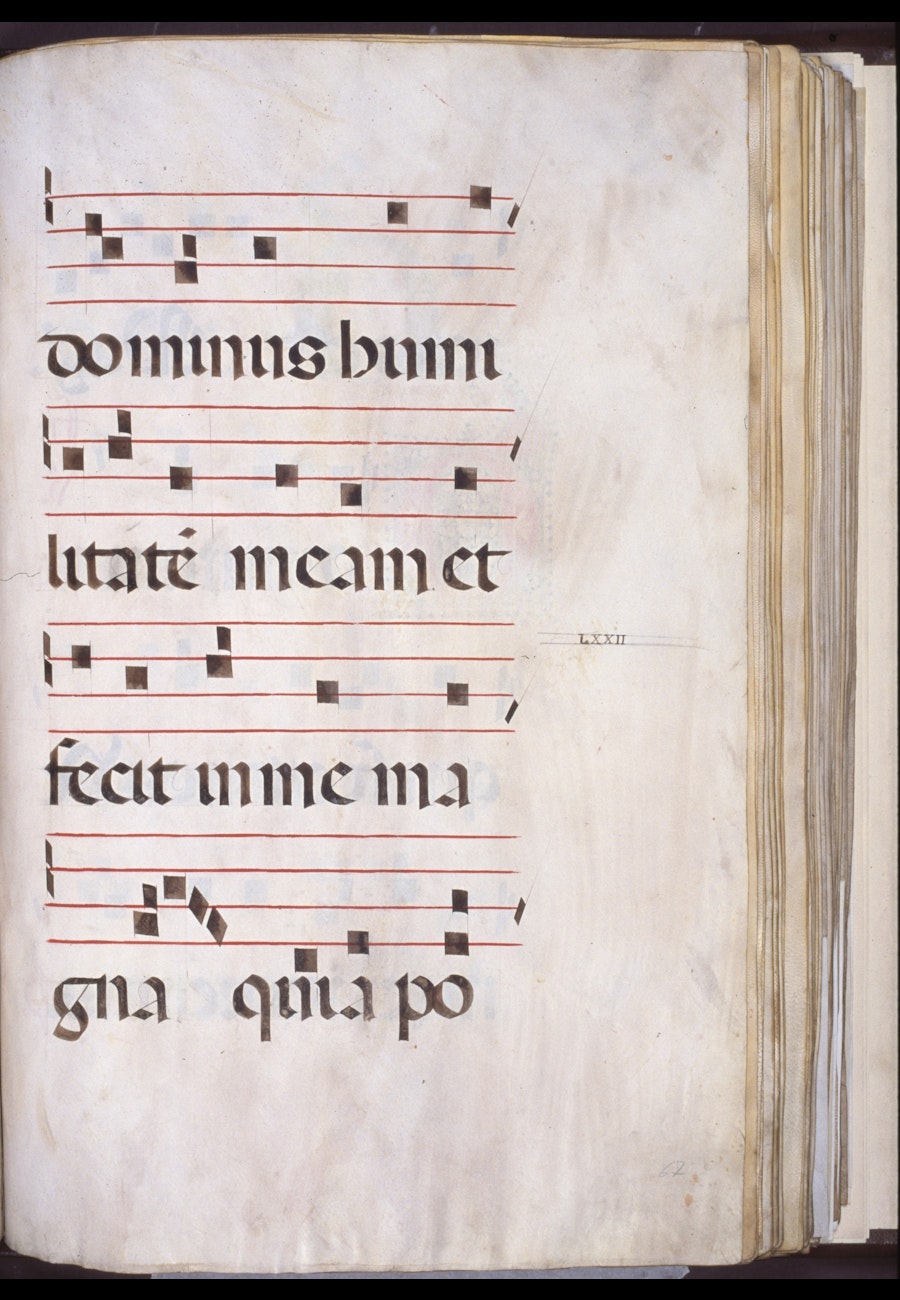 dominus humi
litatē meam et
LXXII
fecit in me ma
gna quia po
67